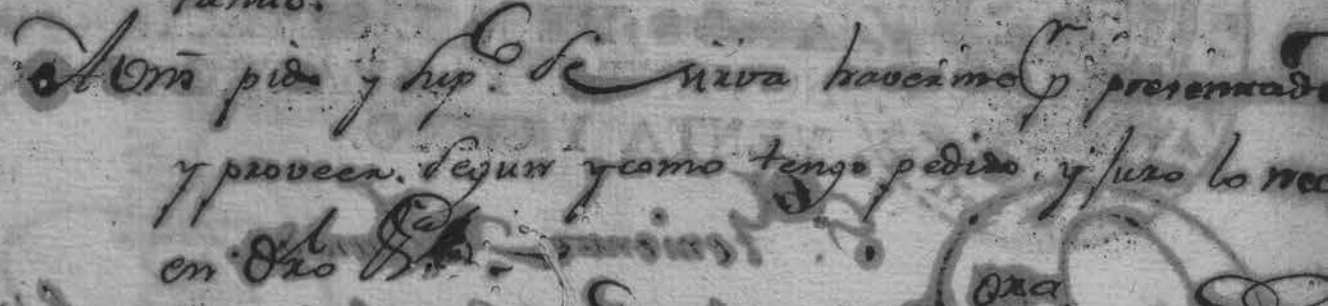 A Vm̃ pido y sup.co se sirva haverme p.r presentado
y proveer segun y como tengo pedido, y juro lo nec
en dro &.a